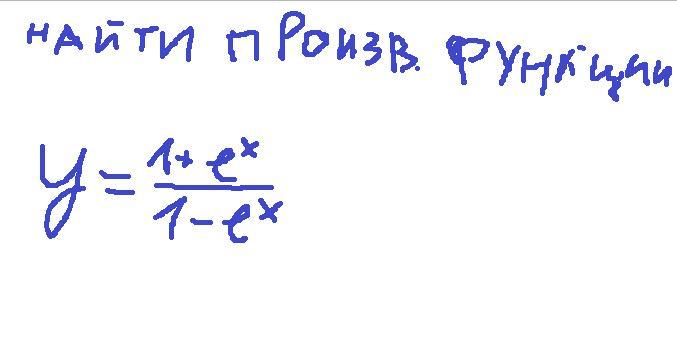 НАЙТИ ПРОИЗВ. ФУНКЦИИ
y = (1 + e^x) / (1 - e^x)